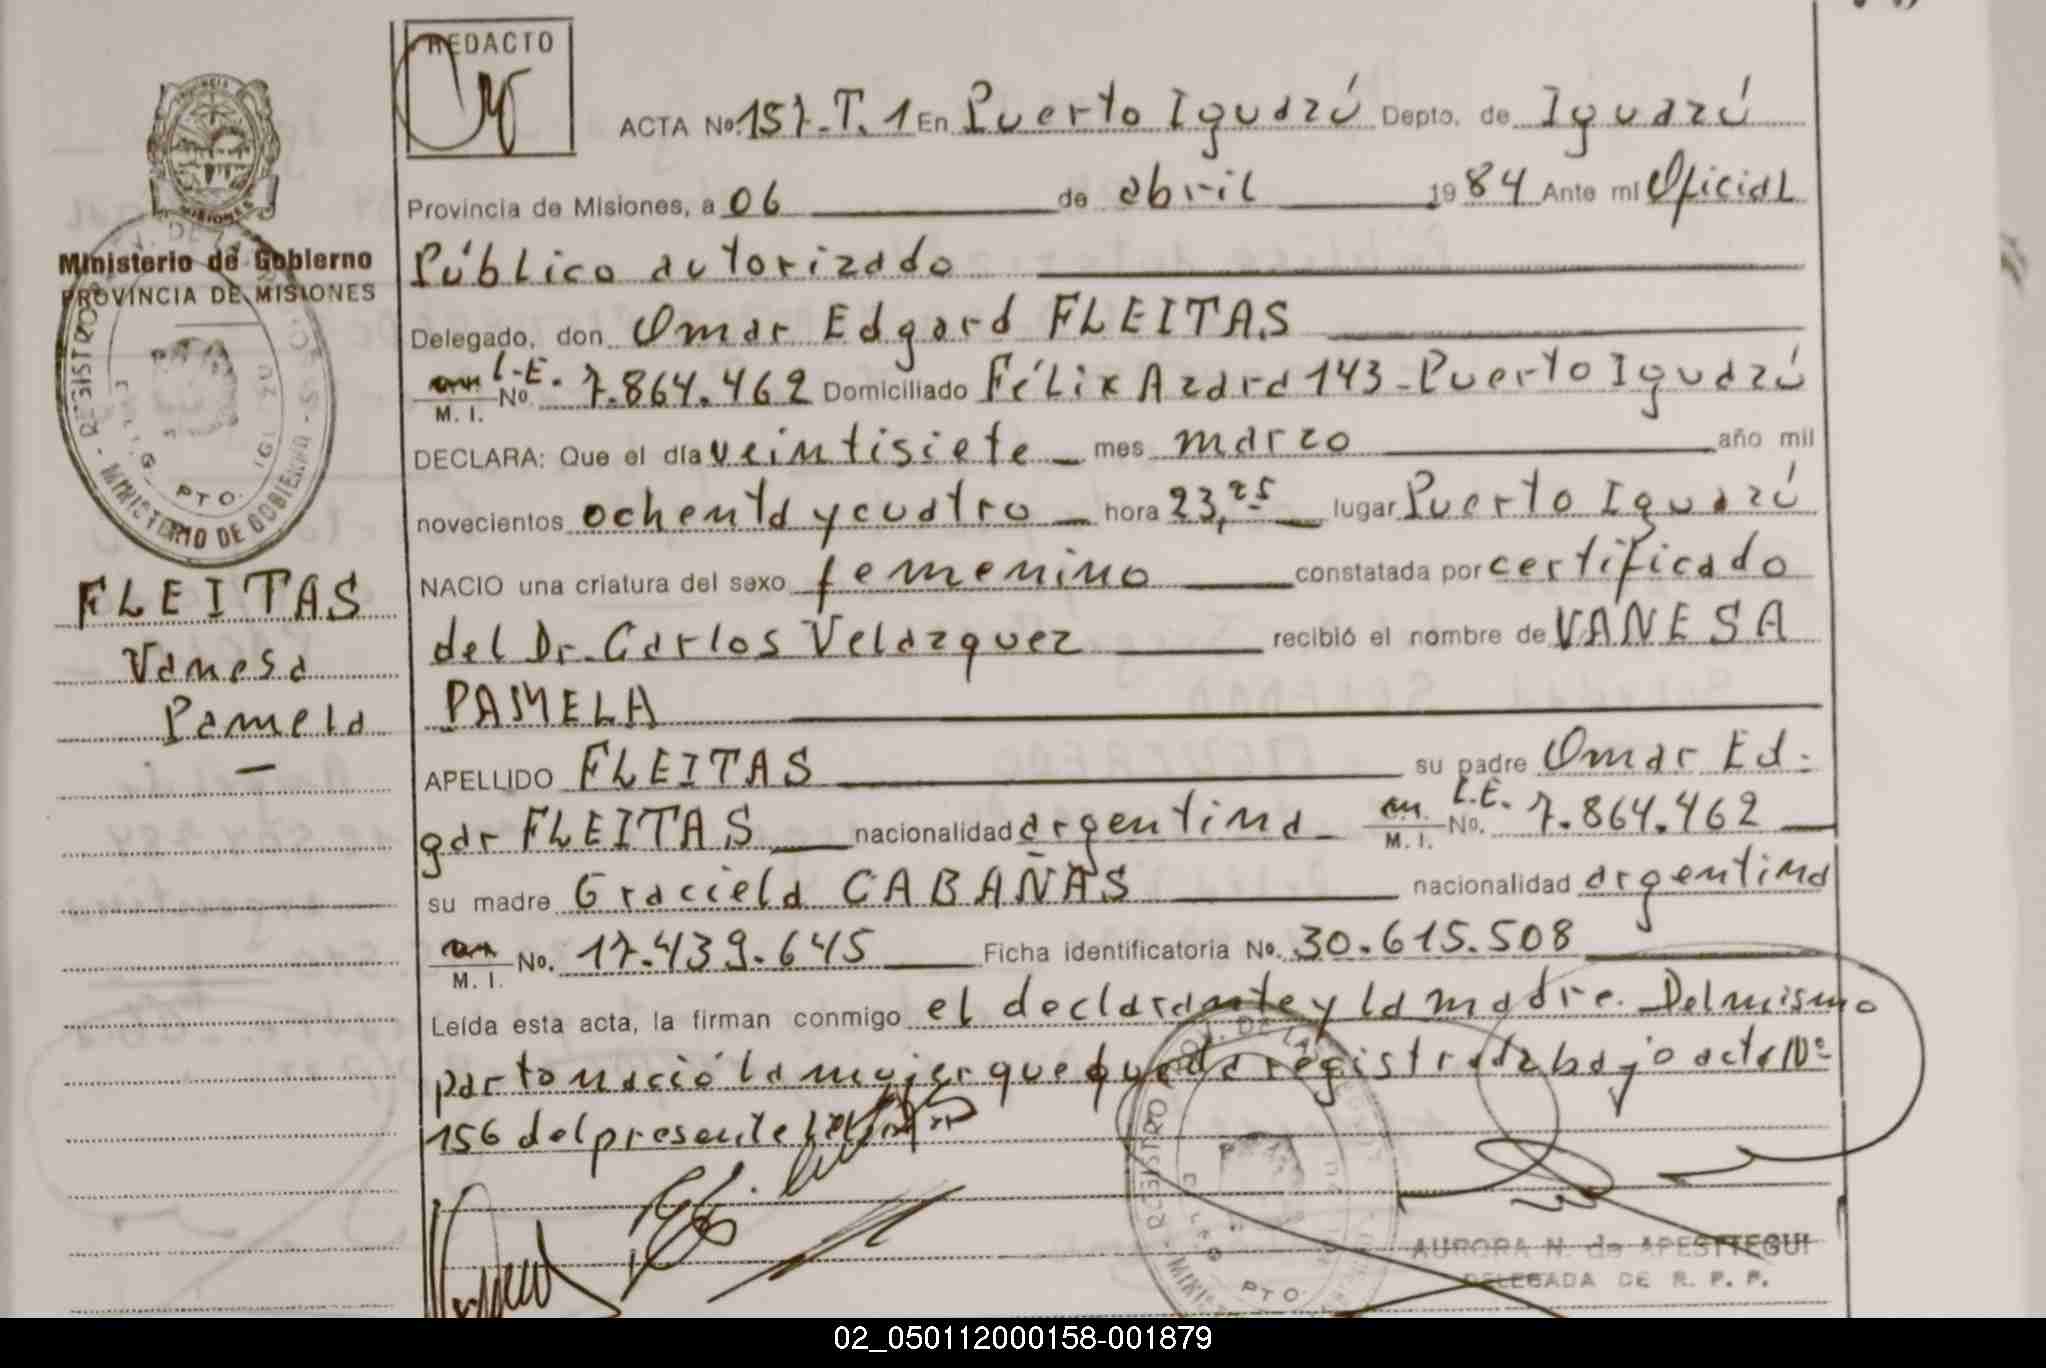 REDACTO
ACTA No. 157-T.1 En Puerto Iguazú Depto. de Iguazú
Provincia de Misiones, a 06 de abril 1984 Ante mí Oficial
Público autorizado
Delegado, don Omar Edgard FLEITAS
L.E.
M. I. No. 7.864.462 Domiciliado Félix Azara 143-Puerto Iguazú
DECLARA: Que el día veintisiete mes marzo año mil
novecientos ochenta y cuatro hora 23,25 lugar Puerto Iguazú
NACIO una criatura del sexo femenino constatada por certificado
del Dr. Carlos Velazquez recibió el nombre de VANESA
PAMELA
APELLIDO FLEITAS su padre Omar Ed-
gar FLEITAS nacionalidad argentina M. I. L.E. No. 7.864.462
su madre Graciela CABAÑAS nacionalidad argentina
M. I. No. 17.439.645 Ficha identificatoria No. 30.615.508
Leída esta acta, la firman conmigo el declarante y la madre. Del mismo
parto nació la mujer que queda registrada bajo acta Nº
156 del presente
AURORA N. de APESTEGUI
DELEGADA DE R. P. P.
PROVINCIA DE
MISIONES
Ministerio de Gobierno
PROVINCIA DE MISIONES
REGISTRO
MINISTERIO DE GOBIERNO
PTO.
FLEITAS
Vanesa
Pamela
REGISTRO
PTO.
02_050112000158-001879